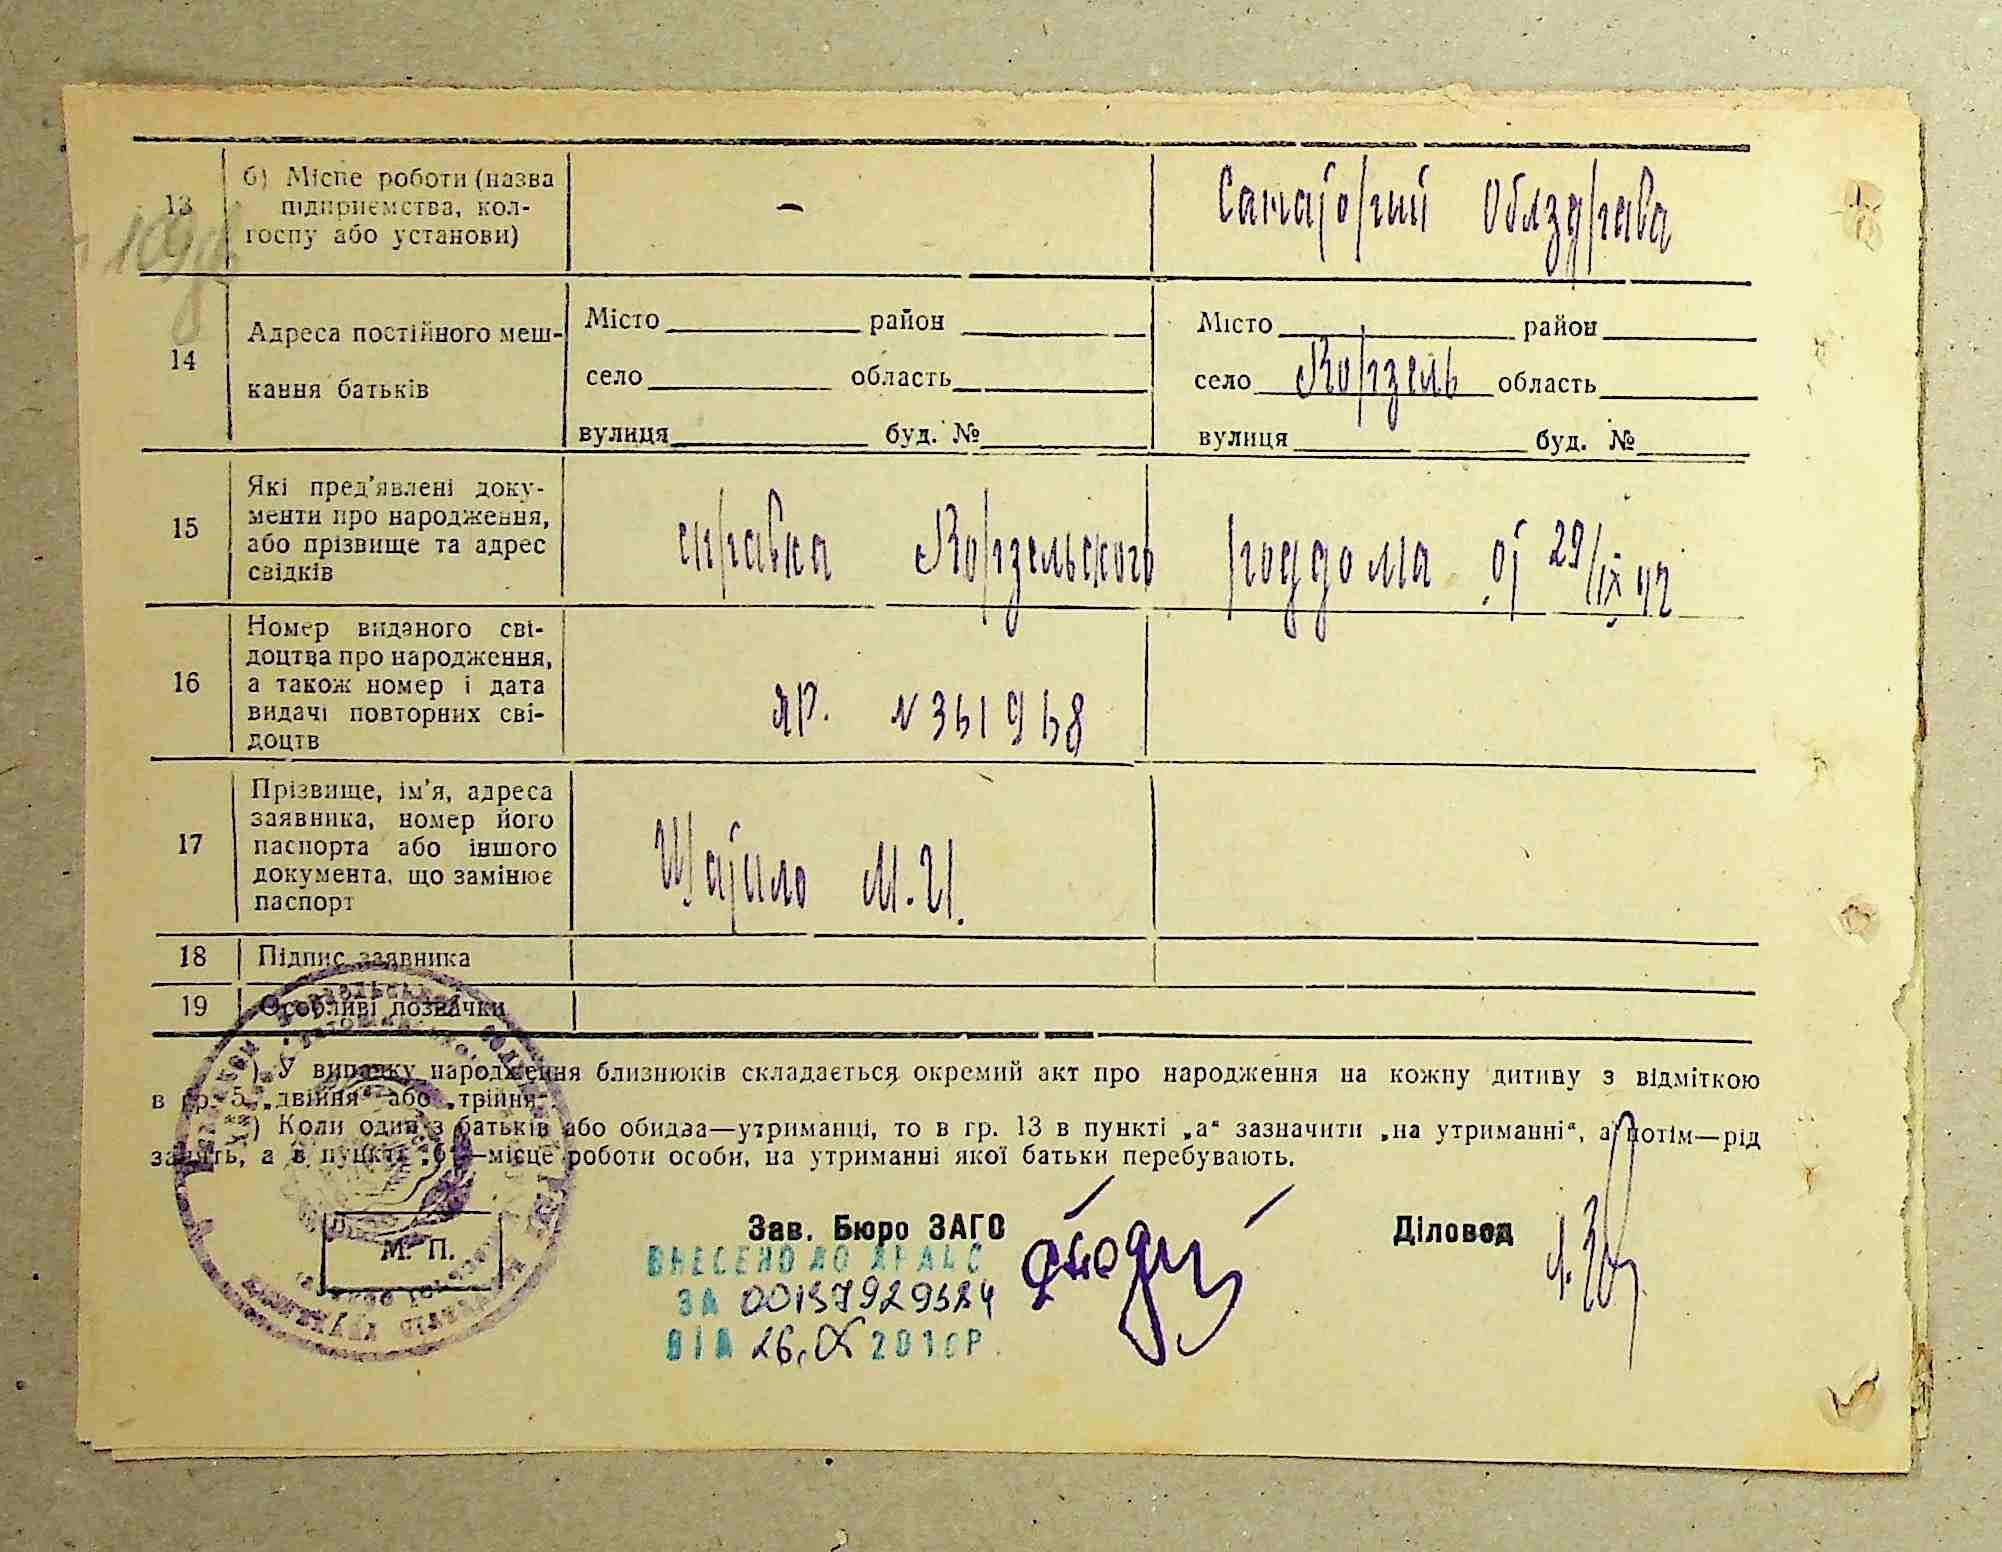 13
б) Місце роботи (назва
підприємства, кол-
госпу або установи)
–
Санаторий Облздрава
14
Адреса постійного меш-
кання батьків
Місто район
село область
вулиця буд. №
Місто район
село Ворзель область
вулиця буд. №
15
Які пред'явлені доку-
менти про народження,
або прізвище та адрес
свідків
справка Ворзельского роддома от 29/IX 47
16
Номер виданого сві-
доцтва про народження,
а також номер і дата
видачі повторних сві-
доцтв
ЯР. N 361968
17
Прізвище, ім'я, адреса
заявника, номер його
паспорта або іншого
документа, що замінює
паспорт
М. И.
18
Підпис заявника
19
Особливі позначки
) У випадку народження близнюків складається окремий акт про народження на кожну дитину з відміткою
в гр. 5 „двійня“ або „трійня“.
) Коли один з батьків або обидва—утриманці, то в гр. 13 в пункті „а“ зазначити „на утриманні“, а потім—рід
занять, а в пункті „б“—місце роботи особи, на утриманні якої батьки перебувають.
Зав. Бюро ЗАГС
Діловод
М. П.
ВНЕСЕНО ДО ДРАЦС
ЗА
ВІД 26.IX 2016Р.